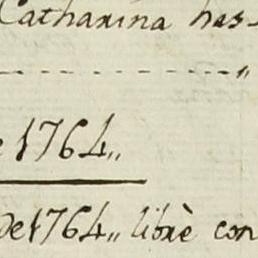 Catharina has-
"
e 1764„
De 1764„ librè con